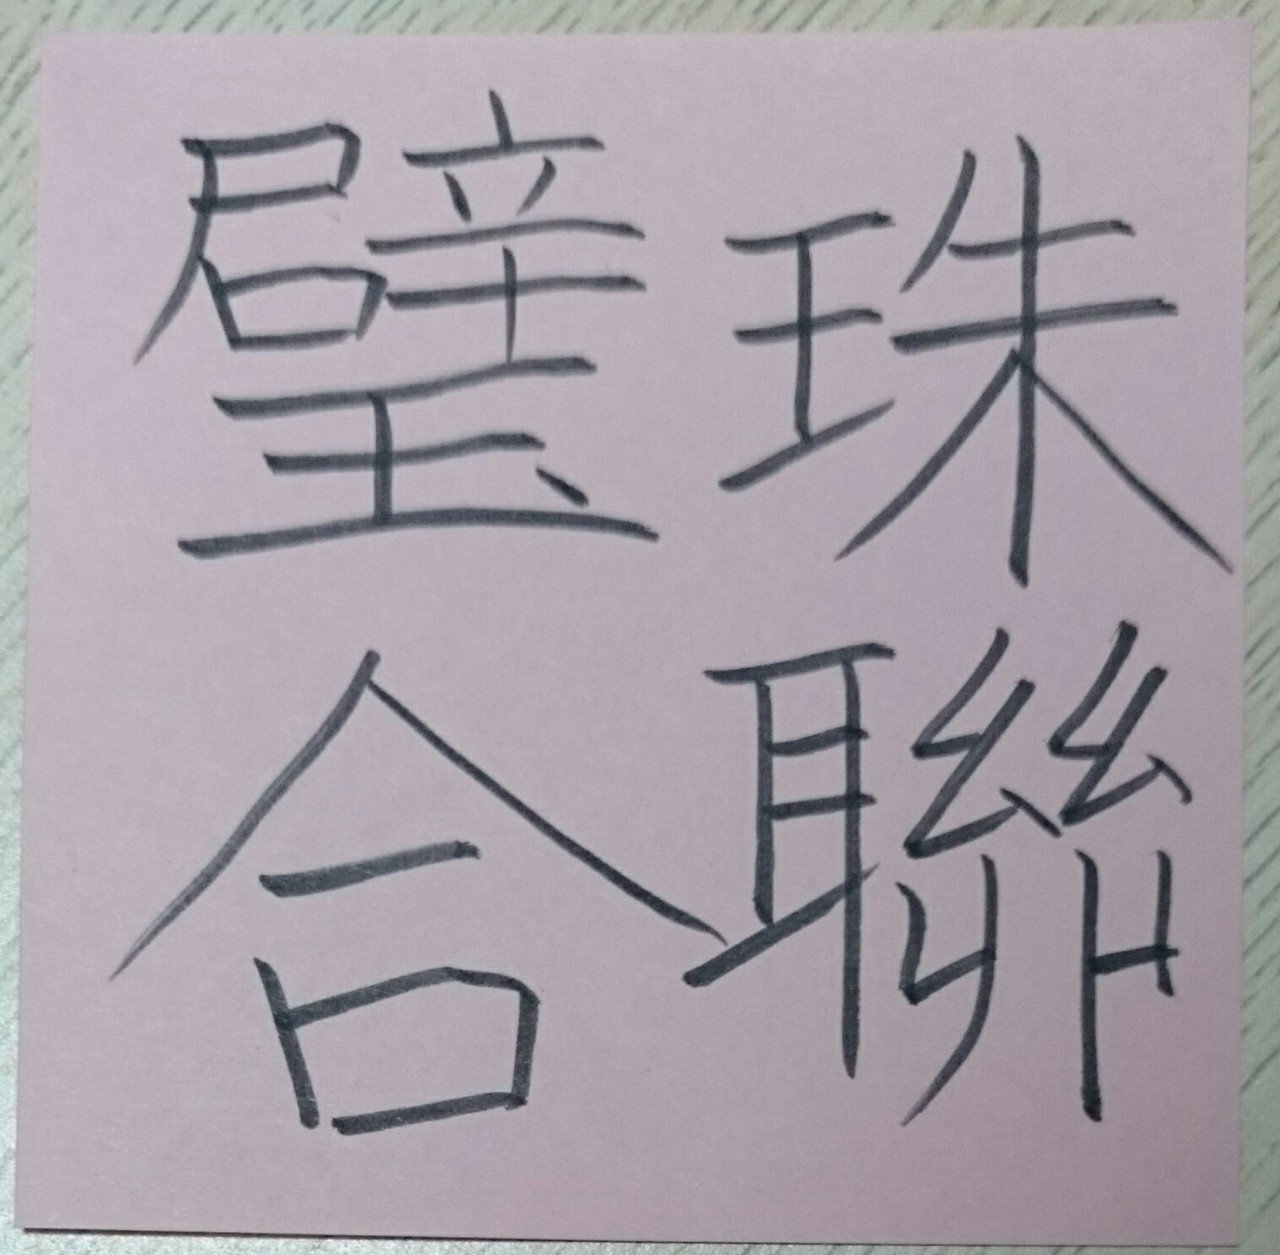 珠聯
璧合